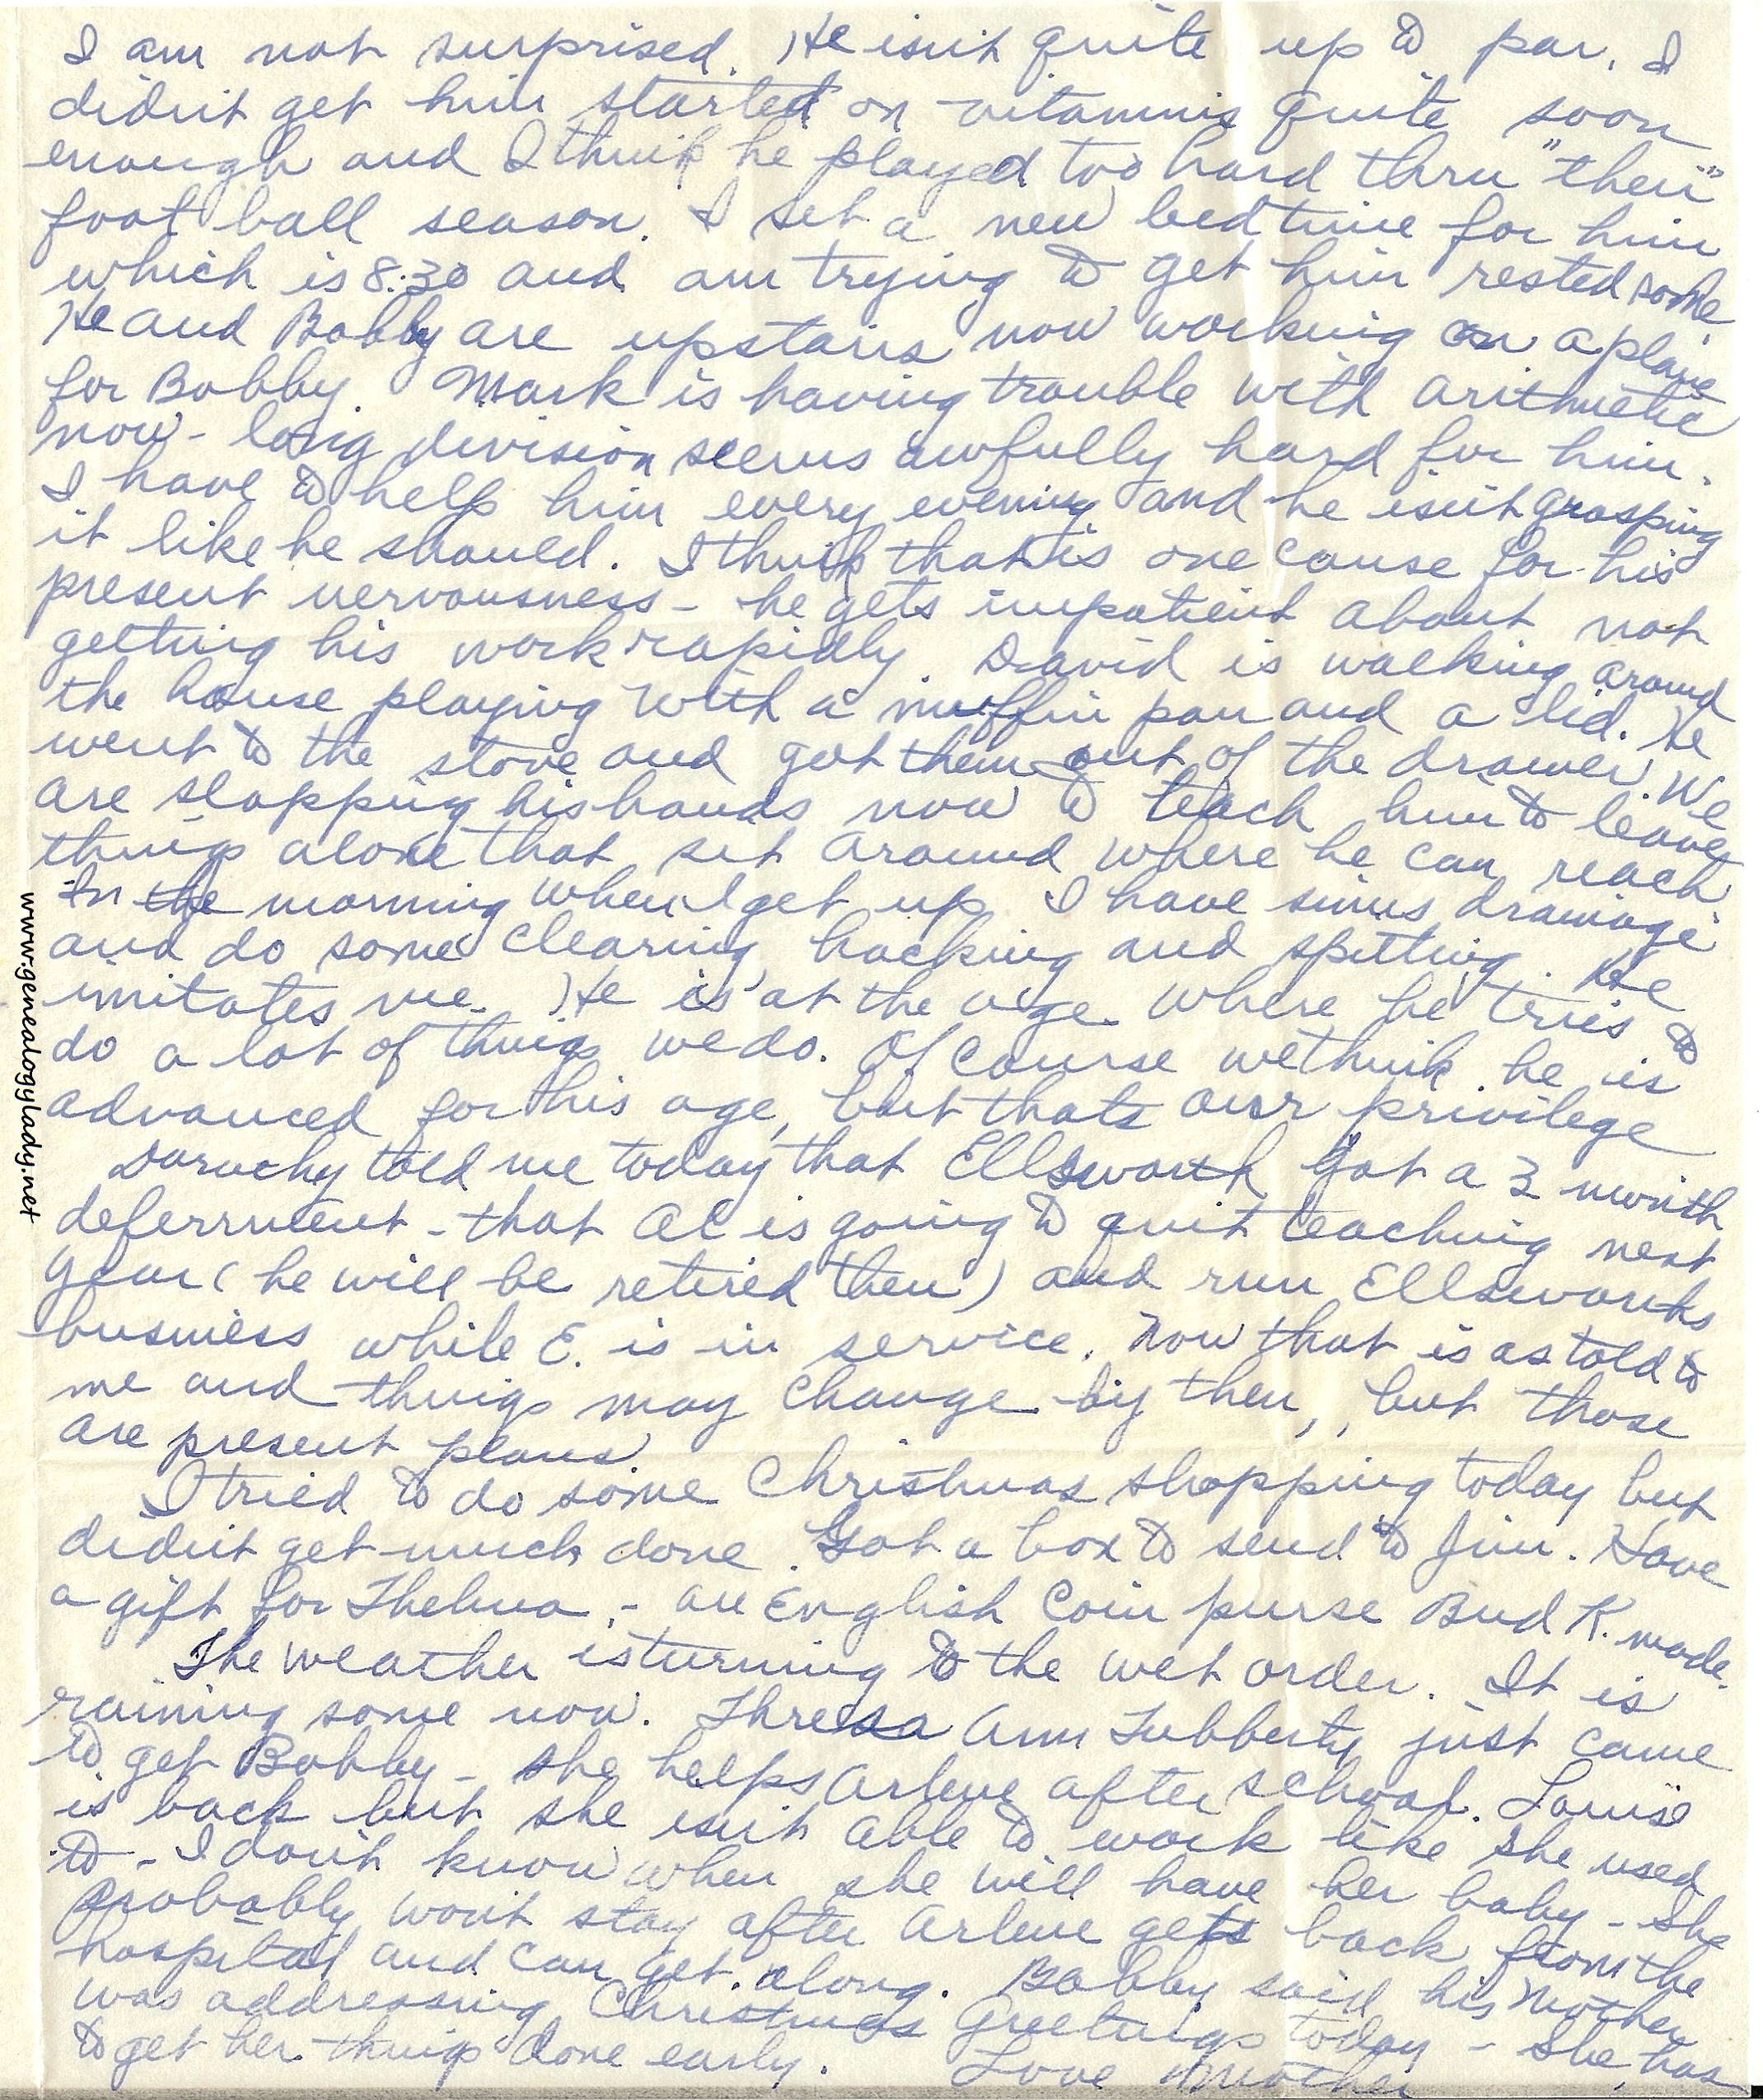 I am not surprised. He isn't quite up to par. I
didn't get him started on vitamins quite soon
enough and I think he played too hard thru "their"
foot ball season. I set a new bedtime for him
which is 8:30 and am trying to get him rested some
He and Bobby are upstairs now working on a plane
for Bobby. Mark is having trouble with aritmetic
now - long division seems awfully hard for him.
I have to help him every evening and he isn't grasping
it like he should. I think that is one cause for his
present nervousness - he gets impatient about not
getting his work rapidly. David is walking around
the house playing with a muffin pan and a lid. He
went to the stove and got them out of the drawer. We
are slapping his hands now to teach him to leave
things alone that set around where he can reach
In the morning when I get up I have sinus drainage
and do some clearing, hacking and spitting. He
imitates me. He is at the age where he tries to
do a lot of things we do. Of course we think he is
advanced for his age, but thats our privilege
Dorothy told me today that Ellsworth got a 3 month
deferrment - that Al is going to quit teaching next
year (he will be retired then) and run Ellsworths
business while E. is in service. Now that is as told to
me and things may change by then, but those
are present plans
I tried to do some Christmas shopping today but
didn't get much done. Got a box to send to Jim. Have
a gift for Thelma, - an English Coin purse Bud K. made.
The weather is turning to the wet order. It is
raining some now. Thresa Ann Tubberty just came
to get Bobby - she helps Arlene after school. Louise
is back but she isn't able to work like she used
to - I don't know when she will have her baby - She
probably won't stay after Arlene gets back from the
hospital and can get along. Bobby said his mother
was addressing Christmas Greetings today - She has
to get her things done early. Love Mother
www.genealogylady.net